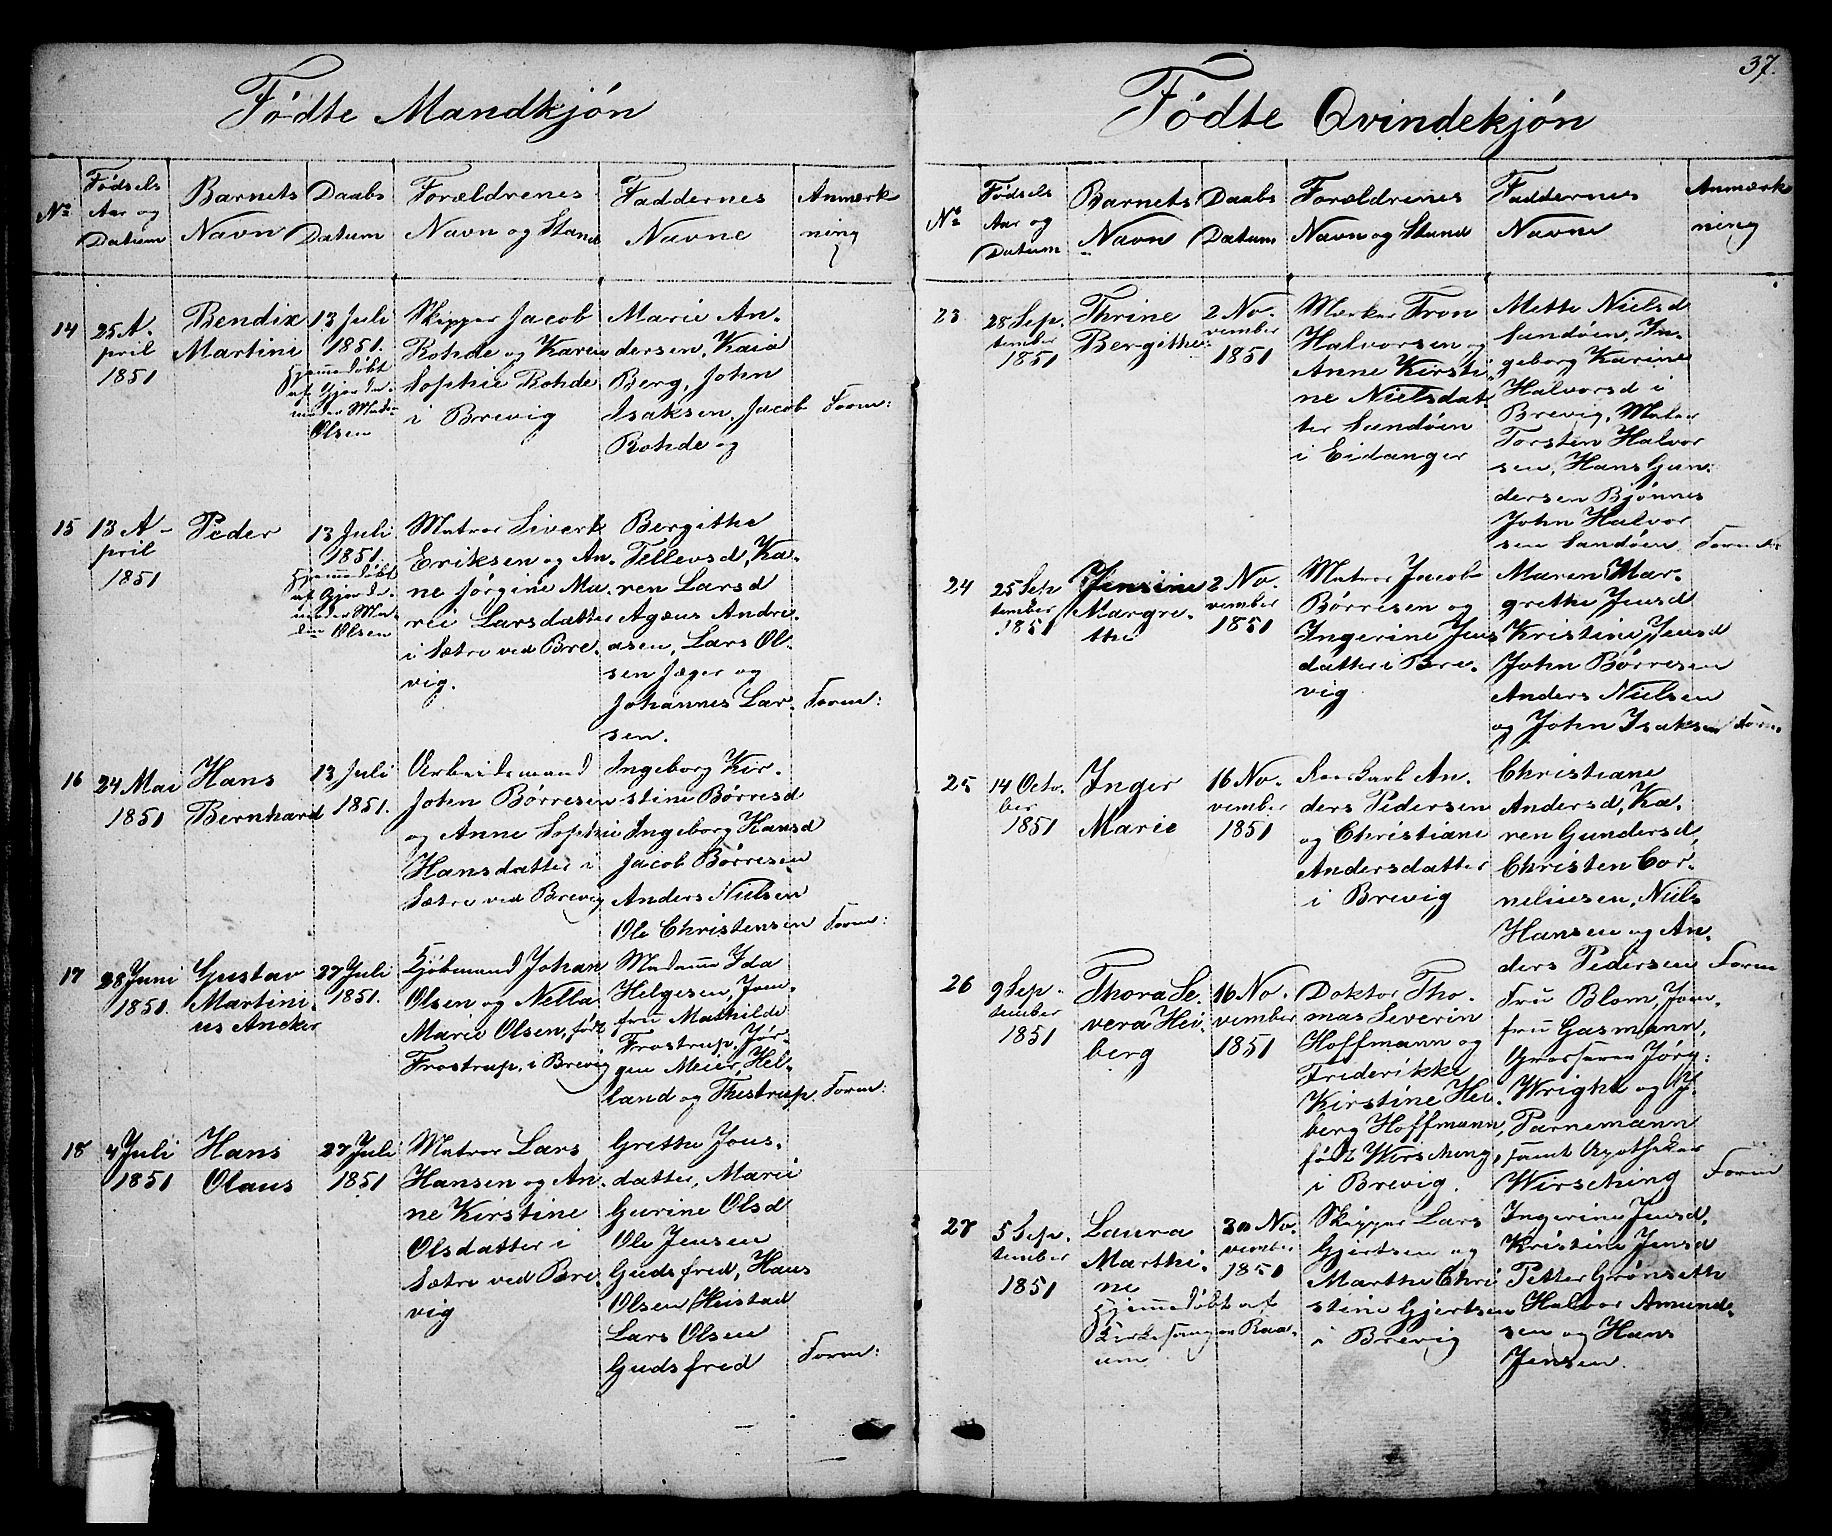 37.
Fødte Mandkjøn
No
Fødsels
Aar og
Datum
Barnets
Navn
Daabs
Datum
Forældrenes
Navn og Stand
Faddernes
Navne
Anmærk
ning
14
25 A-
pril
1851
Bendix
Martini
13 Juli
1851.
Hjemmedøbt
af Gjorde-
moder Mad-
Olsen
Skipper Jacob
Rohde og Karen
Sophie Rohde
i Brevig
Marie An-
dersen, Kaia
Berg, John
Isaksen, Jacob
Rohde og
Form:
15
13 A-
pril
1851
Peder
13 Juli
1851.
Hjemmedøbt
af Gjorde-
moder Ma-
dam Olsen
Matros Sivert
Eriksen og An-
ne Jørgine Ma-
rie Larsdatter
i Sætre ved Bre-
vig.
Bergithe
Tellevsd, Ka-
ren Larsd
Agæus Andre-
asen, Lars Ol-
sen Jæger og
Johannes Lar-
sen.
Form:
16
24 Mai
1851
Hans
Bernhard
13 Juli
1851.
Arbeidsmand
John Børresen
og Anne Sophie
Hansdatter i
Sætre ved Brevig
Ingeborg Kir-
stine Børresd
Ingeborg Hansd
Jacob Børresen
Anders Nielsen
Ole Christensen
Form:
17
28 Juni
1851.
Gustav
Martini-
us Ancker
27 Juli
1851.
Kjøbmand Johan
Olsen og Nella
Marie Olsen, født
Frostrup, i Brevig
Madame Ida
Helgesen, Jom-
fru Mathilde
Frostrup, Jør-
gen Meier, Hel-
land og Thistrup.
Form:
18
4 Juli
1851
Hans
Olaus
27 Juli
1851
Matros Lars
Hansen og An-
ne Kirstine
Olsdatter i
Sætre ved Bre
vig
Grethe Jons-
datter, Marie
Gurine Olsd
Ole Jensen
Gudsfred, Hans
Olsen Heistad
Lars Olsen
Gudsfred
Form:
Fødte Qvindekjøn
No
Fødsels
Aar og
Datum
Barnets
Navn
Daabs
Datum
Forældrenes
Navn og Stand
Faddernes
Navne
Anmærk
ning
23
28 Sep-
tember
1851
Thrine
Bergithe
2 No-
vember
1851
Mærker Tron
Halvorsen og
Anne Kirsti-
ne Nielsdat-
ter Sandøen
i Eidanger
Mette Nielsd
Sandøen, In-
geborg Karine
Halvorsd i
Brevig, Mater
Torsten Halvor
sen, Hans Gun-
dersen Bjønnes
John Halvor
sen Sandøen
Form:
24
25 Sep
tember
1851
Jensine
Margre-
the
2 No-
vember
1851
Matros Jacob
Børresen og
Ingerine Jens
datter i Bre-
vig
Maren Mar-
grethe Jensd
Kristine Jensd
John Børresen
Anders Nielsen
og John Isaksen
Form.
25
14 Octo-
ber
1851
Inger
Marie
16 No-
vember
1851
Carl An-
ders Pedersen
og Christiane
Andersdatter
i Brevig
Christiane
Andersd, Ka-
ren Gundersd,
Christen Cor-
neliusen, Niels
Hansen og An-
ders Pedersen
Form
26
9 Sep-
tember
1851
Thora Se-
vera Hei-
berg
16 No-
vember
1851
Doktor Tho-
mas Severin
Hoffmann og
Friderikke
Kirstine Hei-
berg Hoffmann,
født Wirsching,
i Brevig.
Fru Blom, Jom-
fru Gasmann,
Grosserer Jørg:
Wright og J.
Parnemann
samt Apotheker
Wirsching
Form
27
5 Sep-
tember
1851
Laura
Marthi-
ne
Hjemmedøbt af
Kirkesanger Raa-
um
30 No-
vember
1851
Skipper Lars
Gjertsen og
Marthe Chri
stine Gjertsen
i Brevig
Ingerine Jensd,
Kristine Jensd
Petter Grønseth
Halvor Amund-
sen og Hans
Jensen.